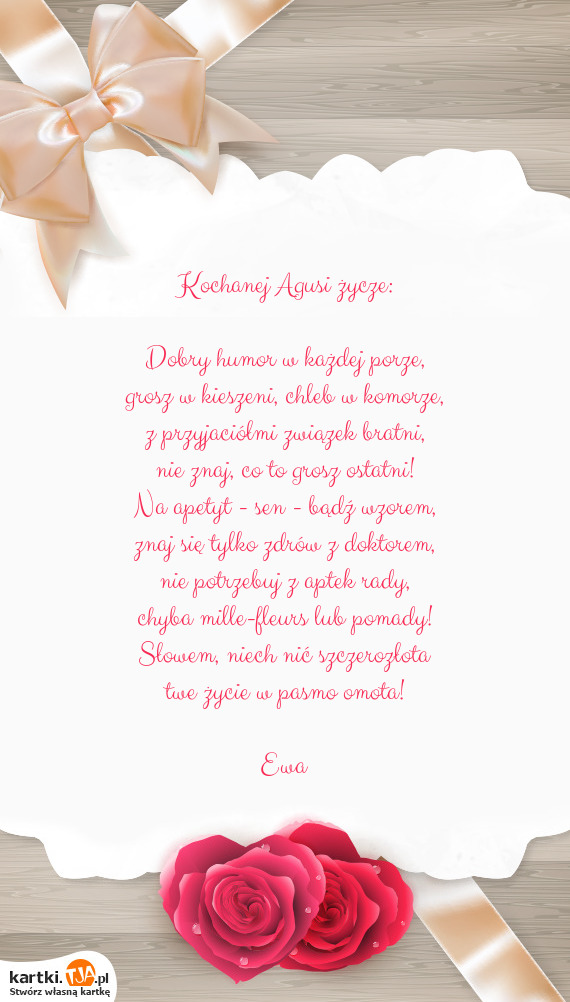 Kochanej Agusi życzę:
Dobry humor w każdej porze,
grosz w kieszeni, chleb w komorze,
z przyjaciółmi związek bratni,
nie znaj, co to grosz ostatni!
Na apetyt - sen - bądź wzorem,
znaj się tylko zdrów z doktorem,
nie potrzebuj z aptek rady,
chyba mille-fleurs lub pomady!
Słowem, niech nić szczerozłota
twe życie w pasmo omota!
Ewa
kartki.TJA.pl
Stwórz własną kartkę